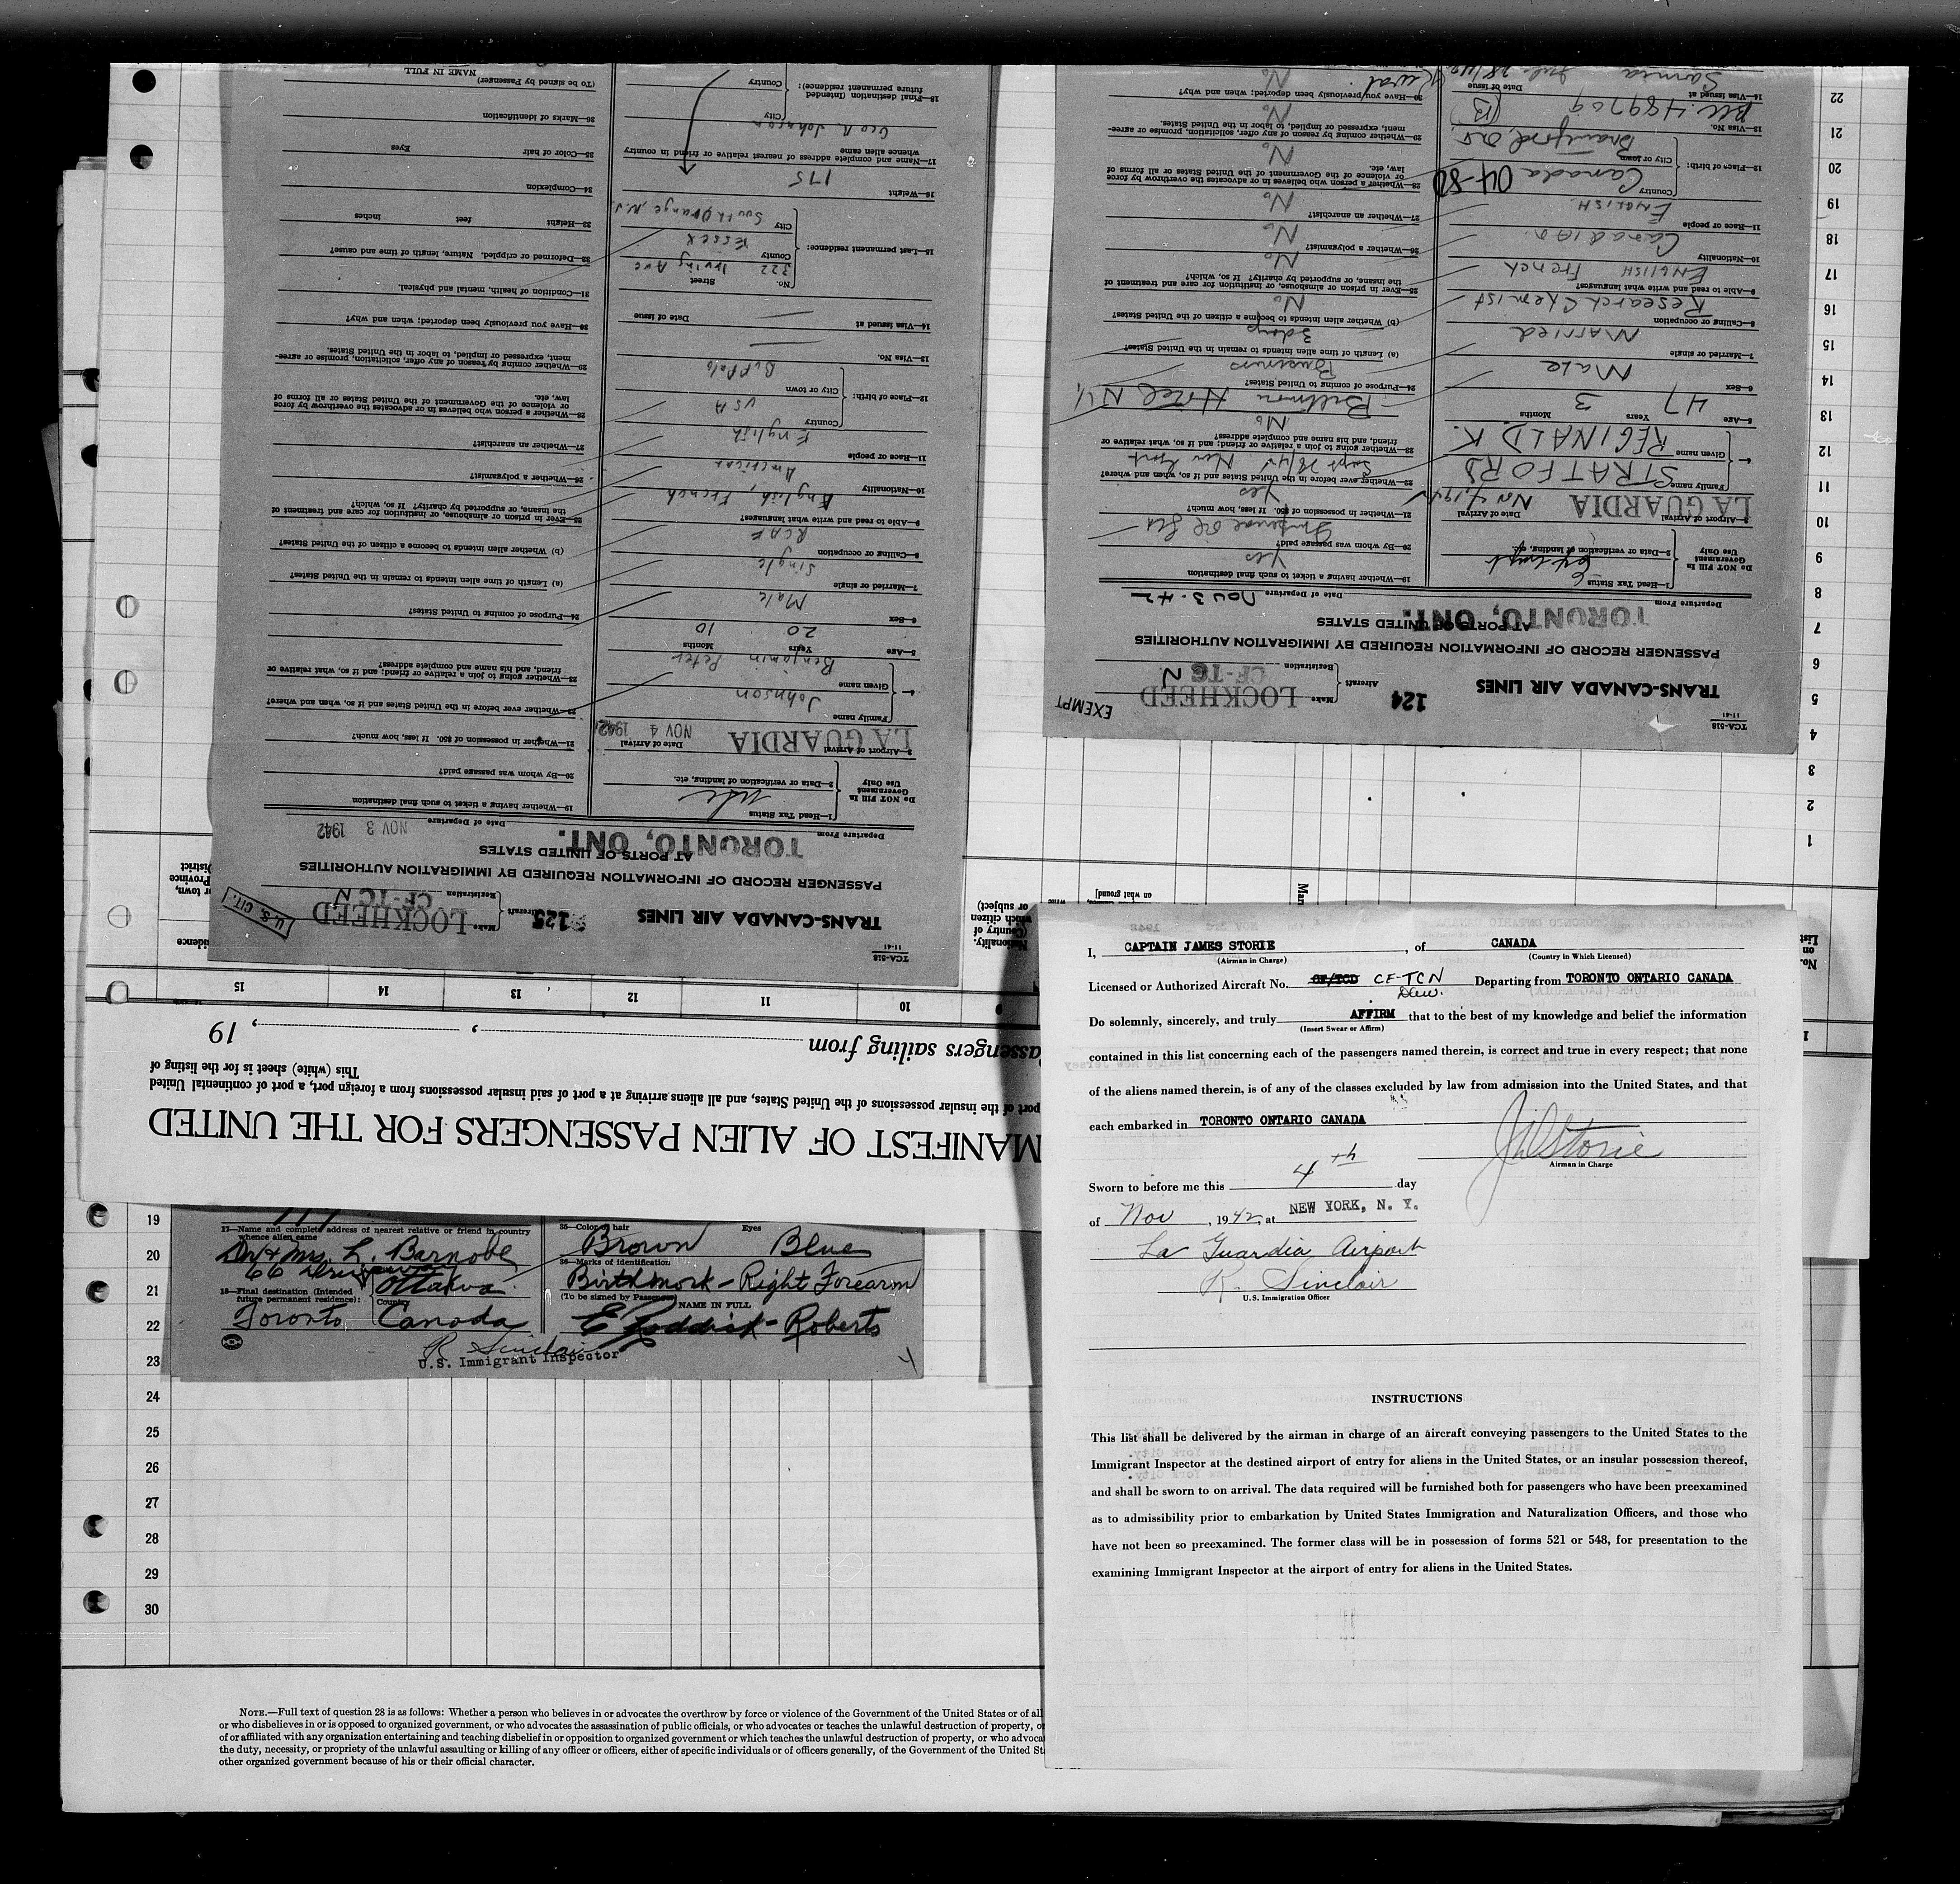 TCA-518
11-41
TRANS-CANADA AIR LINES
124
Aircraft
Make LOCKHEED
Registration CF-TCN
EXEMPT
PASSENGER RECORD OF INFORMATION REQUIRED BY IMMIGRATION AUTHORITIES
AT PORTS OF UNITED STATES
Departure From TORONTO, ONT.
Date of Departure NOV 3. 42
Do NOT Fill In
Government
Use Only
1—Head Tax Status
2—Data or verification of landing, etc.
3—Airport of Arrival LA GUARDIA
Date of Arrival Nov 4, 1942
4—
Family name STRATFORD
Given name REGINALD K.
5—Age 47 Years 3 Months
6—Sex Male
7—Married or single Married
8—Calling or occupation Research Chemist
9—Able to read and write what languages? ENGLISH French
10—Nationality Canadian
11—Race or people ENGLISH.
12—Place of birth:
Country Canada
City or town Brantford, Ont.
13—Visa No. 489709
14—Visa Issued at Sarnia
Date of Issue
19—Whether having a ticket to such final destination Yes
20—By whom was passage paid? Imperial Oil Ltd
21—Whether in possession of $50. If less, how much? Yes
22—Whether ever before in the United States and if so, when and where?
Sept 28/42 New York
23—Whether going to join a relative or friend; and if so, what relative or
friend, and his name and complete address? No
Biltmore Hotel N.Y.
24—Purpose of coming to United States? Business
(a) Length of time alien intends to remain in the United States? 3 days
(b) Whether alien intends to become a citizen of the United States? No
25—Ever in prison or almshouse, or institution for care and treatment of
the insane, or supported by charity? If so, which? No
26—Whether a polygamist? No
27—Whether an anarchist? No
28—Whether a person who believes in or advocates the overthrow by force
or violence of the Government of the United States or all forms of
law, etc. No
29—Whether coming by reason of any offer, solicitation, promise or agree-
ment, expressed or implied, to labor in the United States. No
30—Have you previously been deported; when and why? No
TCA-518
11-41
TRANS-CANADA AIR LINES
125
Aircraft
Make LOCKHEED
Registration CF-TCN
U.S. CIT.
PASSENGER RECORD OF INFORMATION REQUIRED BY IMMIGRATION AUTHORITIES
AT PORTS OF UNITED STATES
Departure From TORONTO, ONT.
Date of Departure NOV 3 1942
Do NOT Fill In
Government
Use Only
1—Head Tax Status
2—Data or verification of landing, etc.
3—Airport of Arrival LA GUARDIA
Date of Arrival NOV 4 1942
4—
Family name Johnson
Given name Benjamin Peter
5—Age 20 Years 10 Months
6—Sex Male
7—Married or single Single
8—Calling or occupation RCAF
9—Able to read and write what languages? English, French
10—Nationality American
11—Race or people English
12—Place of birth:
Country USA
City or town Buffalo
13—Visa No.
14—Visa Issued at
Date of Issue
15—Last permanent residence:
No. Street 322 Irving Ave
County Essex
City South Orange, N.J.
16—Weight 175
17—Name and complete address of nearest relative or friend in country
whence alien came
Geo R Johnson
18—Final destination (Intended
future permanent residence):
City
Country
19—Whether having a ticket to such final destination
20—By whom was passage paid?
21—Whether in possession of $50. If less, how much?
22—Whether ever before in the United States and if so, when and where?
23—Whether going to join a relative or friend; and if so, what relative or
friend, and his name and complete address?
24—Purpose of coming to United States?
(a) Length of time alien intends to remain in the United States?
(b) Whether alien intends to become a citizen of the United States?
25—Ever in prison or almshouse, or institution for care and treatment of
the insane, or supported by charity? If so, which?
26—Whether a polygamist?
27—Whether an anarchist?
28—Whether a person who believes in or advocates the overthrow by force
or violence of the Government of the United States or all forms of
law, etc.
29—Whether coming by reason of any offer, solicitation, promise or agree-
ment, expressed or implied, to labor in the United States.
30—Have you previously been deported; when and why?
31—Condition of health, mental and physical.
32—Deformed or crippled. Nature, length of time and cause?
33—Height feet inches
34—Complexion
35—Color of hair Eyes
36—Marks of identification
(To be signed by Passenger)
NAME IN FULL
MANIFEST OF ALIEN PASSENGERS FOR THE UNITED
port of the insular possessions of the United States, and all aliens arriving at a port of said insular possessions from a foreign port, a port of continental United
This (white) sheet is for the listing of
assengers sailing from , , 19
9 10 11 12 13 14 15
No.
on
List
Nationality.
(Country of
which citizen
or subject)
1
2
3
4
5
6
7
8
9
10
11
12
13
14
15
16
17
18
19
20
21
22
17—Name and complete address of nearest relative or friend in country
whence alien came
Dr & Mrs. L. Barnabe
Ottawa
18—Final destination (Intended
future permanent residence):
Toronto
Country
Canada
35—Color of hair Eyes
Brown Blue
36—Marks of identification
Birthmark - Right Forearm
(To be signed by Passenger)
NAME IN FULL
E Roddick-Roberts
R Sinclair
U.S. Immigrant Inspector
19
20
21
22
23
24
25
26
27
28
29
30
NOTE.—Full text of question 28 is as follows: Whether a person who believes in or advocates the overthrow by force or violence of the Government of the United States or of all
or who disbelieves in or is opposed to organized government, or who advocates the assassination of public officials, or who advocates or teaches the unlawful destruction of property, or
of or affiliated with any organization entertaining and teaching disbelief in or opposition to organized government or which teaches the unlawful destruction of property, or who advoca
the duty, necessity, or propriety of the unlawful assaulting or killing of any officer or officers, either of specific individuals or of officers generally, of the Government of the United St
other organized government because of his or their official character.
I, CAPTAIN JAMES STORIE, of CANADA
(Airman in Charge) (Country in Which Licensed)
Licensed or Authorized Aircraft No. CF/TCD CF-TCN Departing from TORONTO ONTARIO CANADA
Do solemnly, sincerely, and truly AFFIRM that to the best of my knowledge and belief the information
(Insert Swear or Affirm)
contained in this list concerning each of the passengers named therein, is correct and true in every respect; that none
of the aliens named therein, is of any of the classes excluded by law from admission into the United States, and that
each embarked in TORONTO ONTARIO CANADA
Storie
Airman in Charge
Sworn to before me this 4th day
of Nov, 1942, at NEW YORK, N. Y.
La Guardia Airport
R. Sinclair
U.S. Immigration Officer
INSTRUCTIONS
This list shall be delivered by the airman in charge of an aircraft conveying passengers to the United States to the
Immigrant Inspector at the destined airport of entry for aliens in the United States, or an insular possession thereof,
and shall be sworn to on arrival. The data required will be furnished both for passengers who have been preexamined
as to admissibility prior to embarkation by United States Immigration and Naturalization Officers, and those who
have not been so preexamined. The former class will be in possession of forms 521 or 548, for presentation to the
examining Immigrant Inspector at the airport of entry for aliens in the United States.